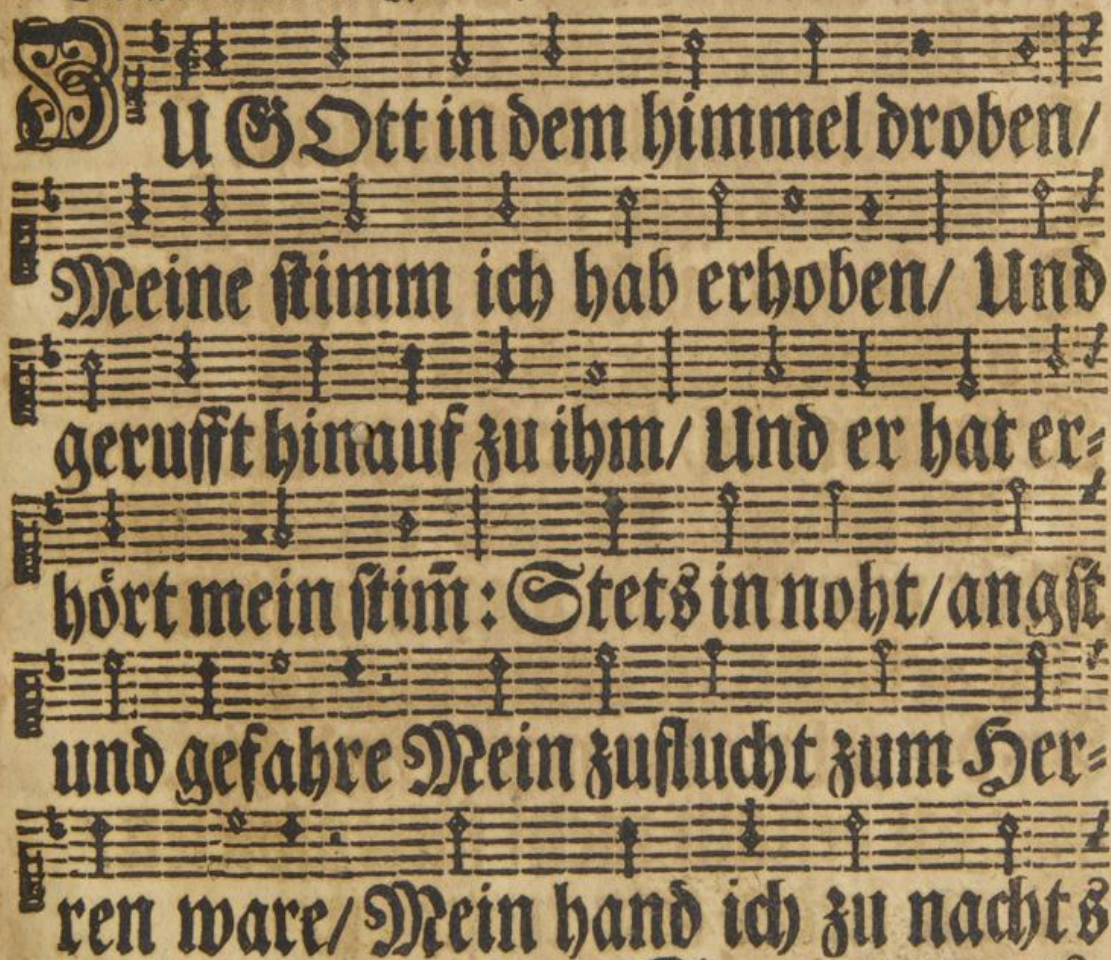 ZU GOtt in dem himmel droben/
Meine stimm ich hab erhoben/ Und
gerufft hinauf zu ihm/ Und er hat er⸗
hört mein stim̃: Stets in noht/ angst
und gefahre Mein zuflucht zum Her⸗
ren ware/ Mein hand ich zu nachts